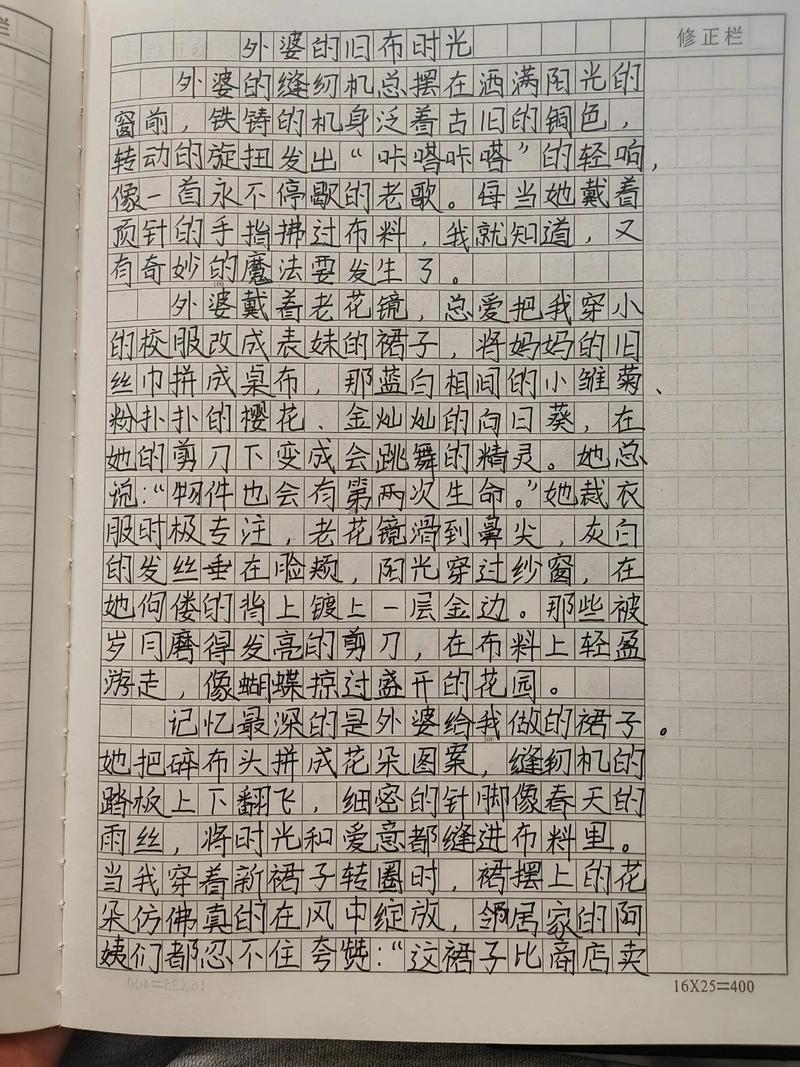 外婆的旧布时光
修正栏
外婆的缝纫机总摆在洒满阳光的
窗前，铁铸的机身泛着古旧的铜色，
转动的旋扭发出“咔嗒咔嗒”的轻响，
像一首永不停歇的老歌。每当她戴着
顶针的手指拂过布料，我就知道，又
有奇妙的魔法要发生了。
外婆戴着老花镜，总爱把我穿小
的校服改成表妹的裙子，将妈妈的旧
丝巾拼成桌布，那蓝白相间的小雏菊、
粉扑扑的樱花、金灿灿的向日葵，在
她的剪刀下变成会跳舞的精灵。她总
说：“物件也会有第两次生命。”她裁衣
服时极专注，老花镜滑到鼻尖，灰白
的发丝垂在脸颊，阳光穿过纱窗，在
她佝偻的背上镀上一层金边。那些被
岁月磨得发亮的剪刀，在布料上轻盈
游走，像蝴蝶掠过盛开的花园。
记忆最深的是外婆给我做的裙子。
她把碎布头拼成花朵图案，缝纫机的
踏板上下翻飞，细密的针脚像春天的
雨丝，将时光和爱意都缝进布料里。
当我穿着新裙子转圈时，裙摆上的花
朵仿佛真的在风中绽放，邻居家的阿
姨们都忍不住夸赞：“这裙子比商店卖
16X25=400